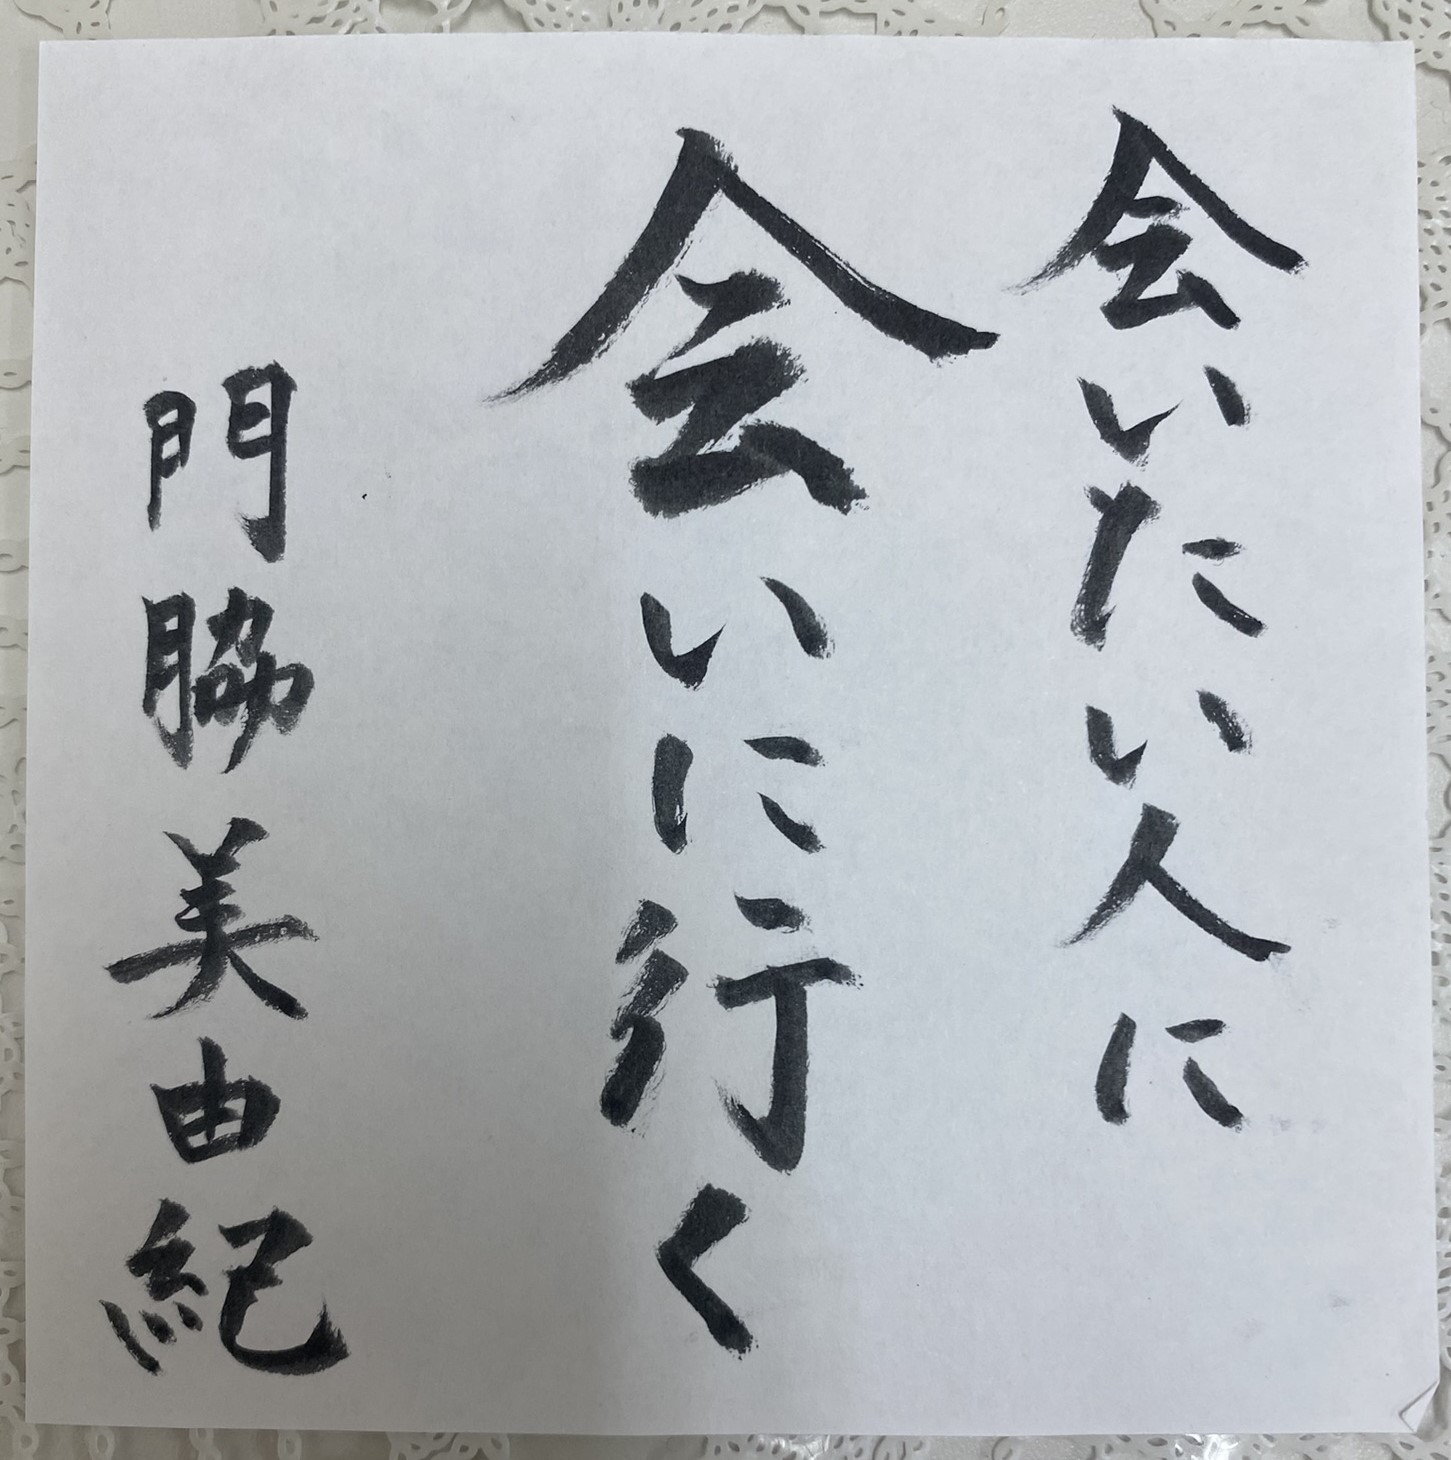 会いたい人に
会いに行く
門脇美由紀